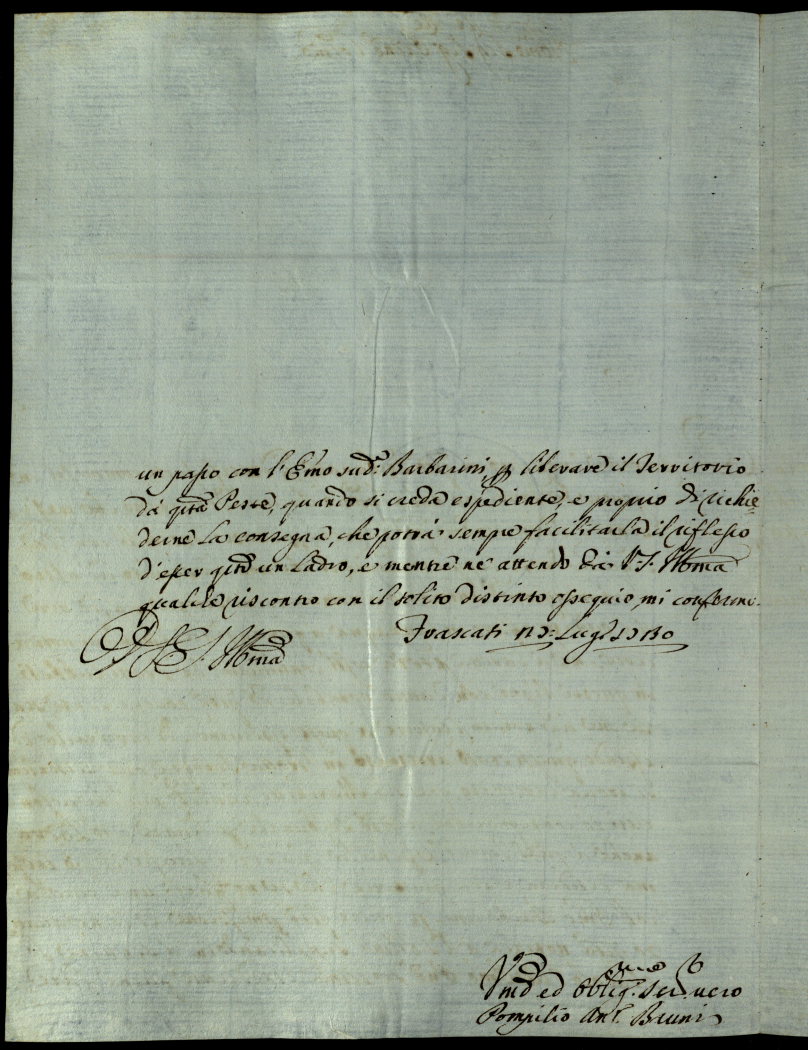 un passo con l'Emo sud: Barbarini, p liberare il Territorio
da qsta Peste, quando si creda espediente, e proprio di richie=
derne la consegna, che potrà sempre facilitarla il riflesso
d'esser qsto un Ladro, e mentre ne attendo da V.S. Illma
qualche riscontro con il solito distinto ossequio mi confermo.
Di V.S. Illma
Frascati Luglio
Umo ed Obligmo Serv. vero
Pompilio Ant. Bruni